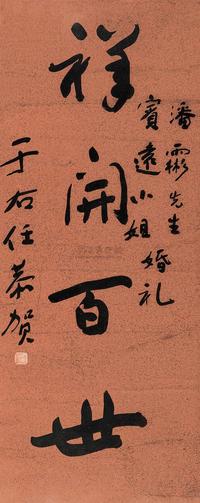 潘霨先生
賓遠小姐婚礼
祥開百世
于右任恭賀